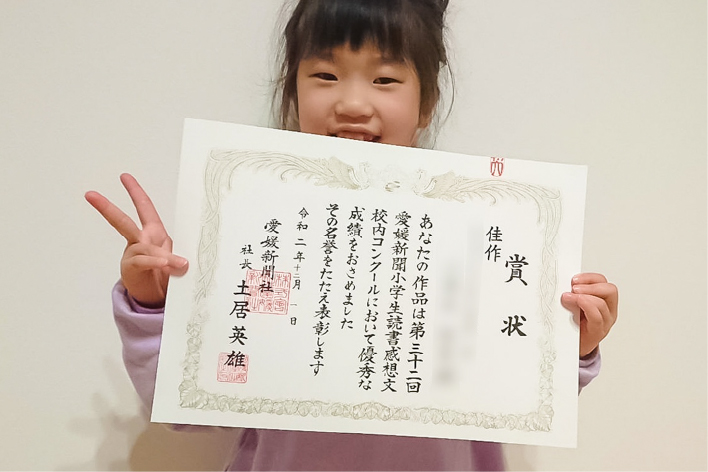 賞状
佳作
あなたの作品は第三十二回
愛媛新聞小学生読書感想文
校内コンクールにおいて優秀な
成績をおさめました
その名誉をたたえ表彰します
令和二年十二月一日
愛媛新聞社
社長 土居英雄